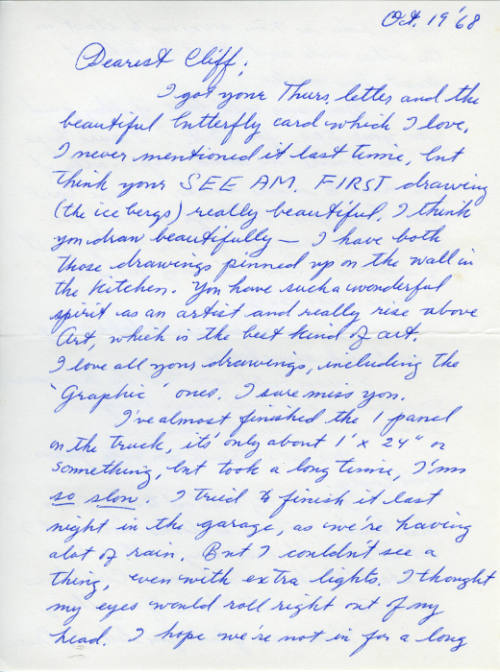 Oct. 19 '68
Dearest Cliff,
I got your Thurs. letter and the
beautiful butterfly card which I love.
I never mentioned it last time, but
think your SEE AM. FIRST drawing
(the ice bergs) really beautiful. I think
you draw beautifully — I have both
those drawings pinned up on the wall in
the kitchen. You have such a wonderful
spirit as an artist and really rise above
Art, which is the best kind of art.
I love all your drawings, including the
'Graphic' ones. I sure miss you.
I've almost finished the 1 panel
on the truck, it's only about 1' x 24" or
something, but took a long time, I'm
so slow. I tried to finish it last
night in the garage, as we're having
alot of rain. But I couldn't see a
thing, even with extra lights. I thought
my eyes would roll right out of my
head. I hope we're not in for a long